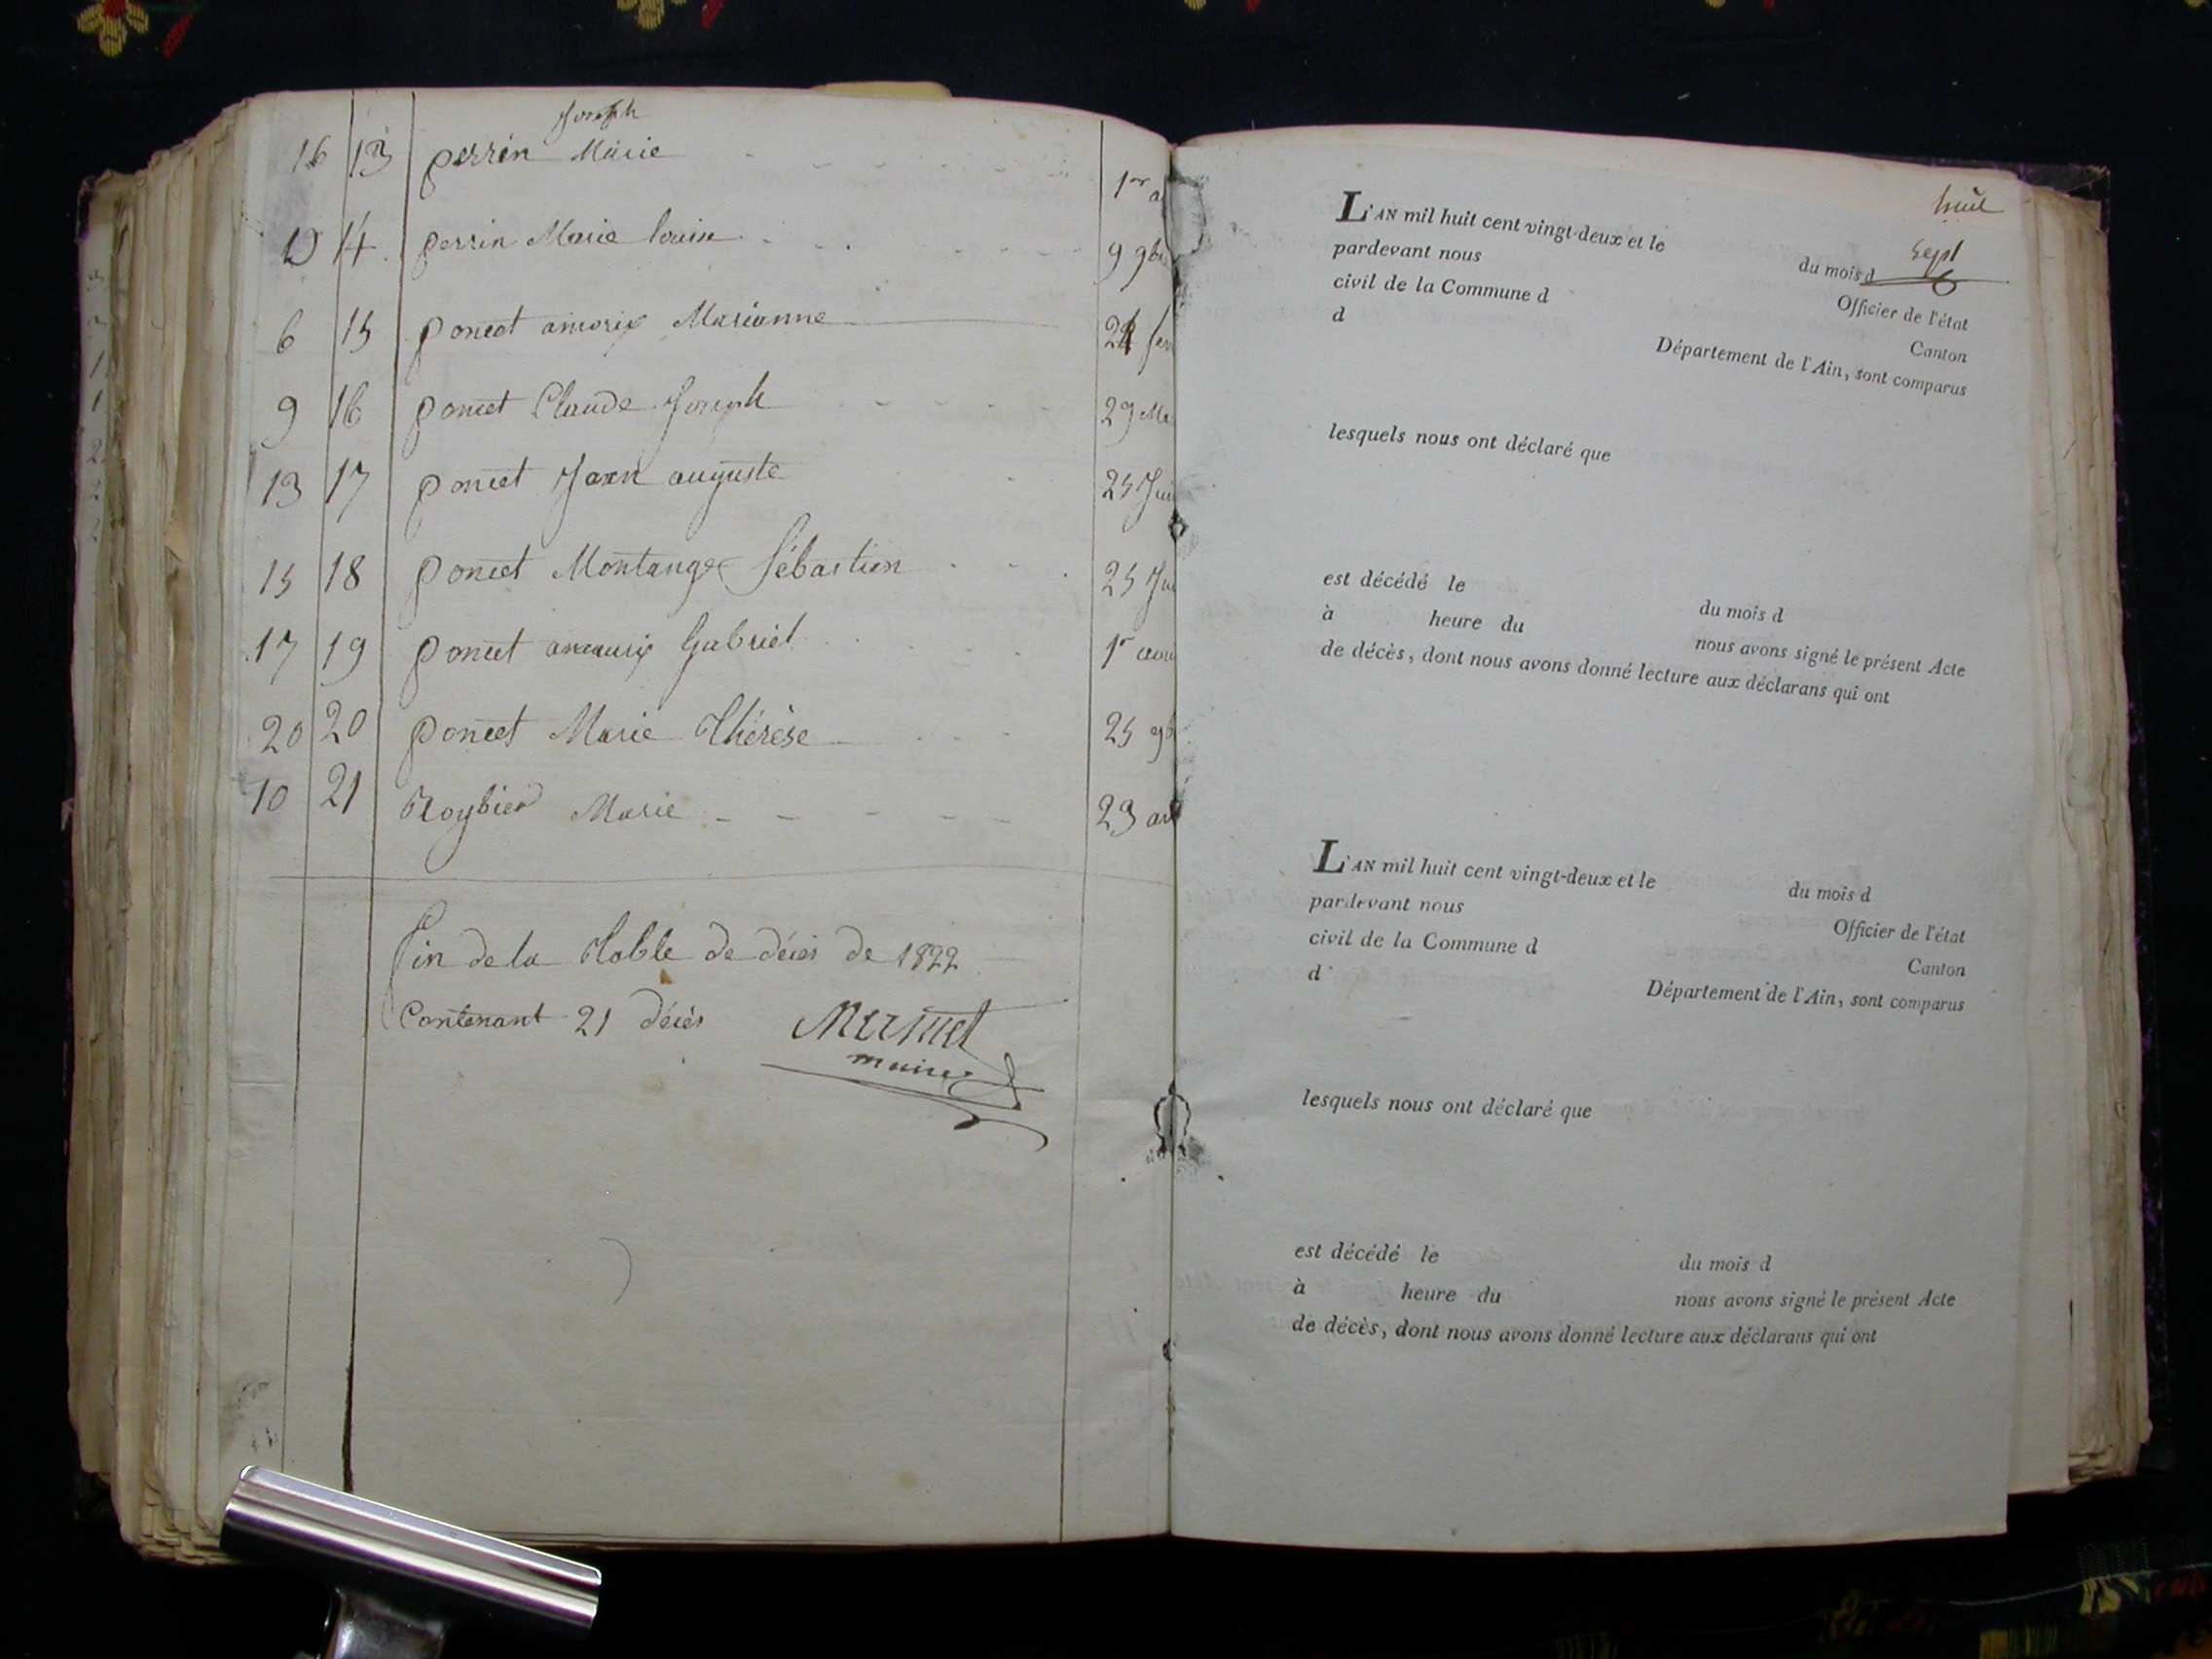 Joseph
16 13 perrin Marie 1er a
19 14 perrin Marie louise 9 9bre
6 15 poncet amorix Marianne 24 fev
9 16 poncet Claude Joseph 29 Ma
13 17 poncet Jean auguste 25 Jui
15 18 poncet Montange Sébastien 25 Jui
17 19 poncet amaurix Gabriel 1r aou
20 20 poncet Marie Thérèse 25 9b
10 21 Roybier Marie 23 av
Fin de la Table de décès de 1822
Contenant 21 décès
Mermet
maire
huit
sept
L'AN mil huit cent vingt-deux et le du mois d
pardevant nous Officier de l'état
civil de la Commune d Canton
d Département de l'Ain, sont comparus
lesquels nous ont déclaré que
est décédé le du mois d
à heure du nous avons signé le présent Acte
de décès, dont nous avons donné lecture aux déclarans qui ont
L'AN mil huit cent vingt-deux et le du mois d
pardevant nous Officier de l'état
civil de la Commune d Canton
d Département de l'Ain, sont comparus
lesquels nous ont déclaré que
est décédé le du mois d
à heure du nous avons signé le présent Acte
de décès, dont nous avons donné lecture aux déclarans qui ont